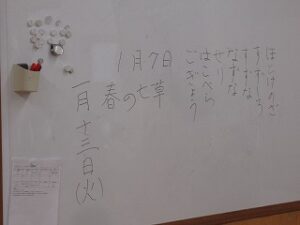 ほとけのざ
すずしろ
すずな
なずな
せり
はこべら
ごぎょう
1月7日
春の七草
一月十三日(火)